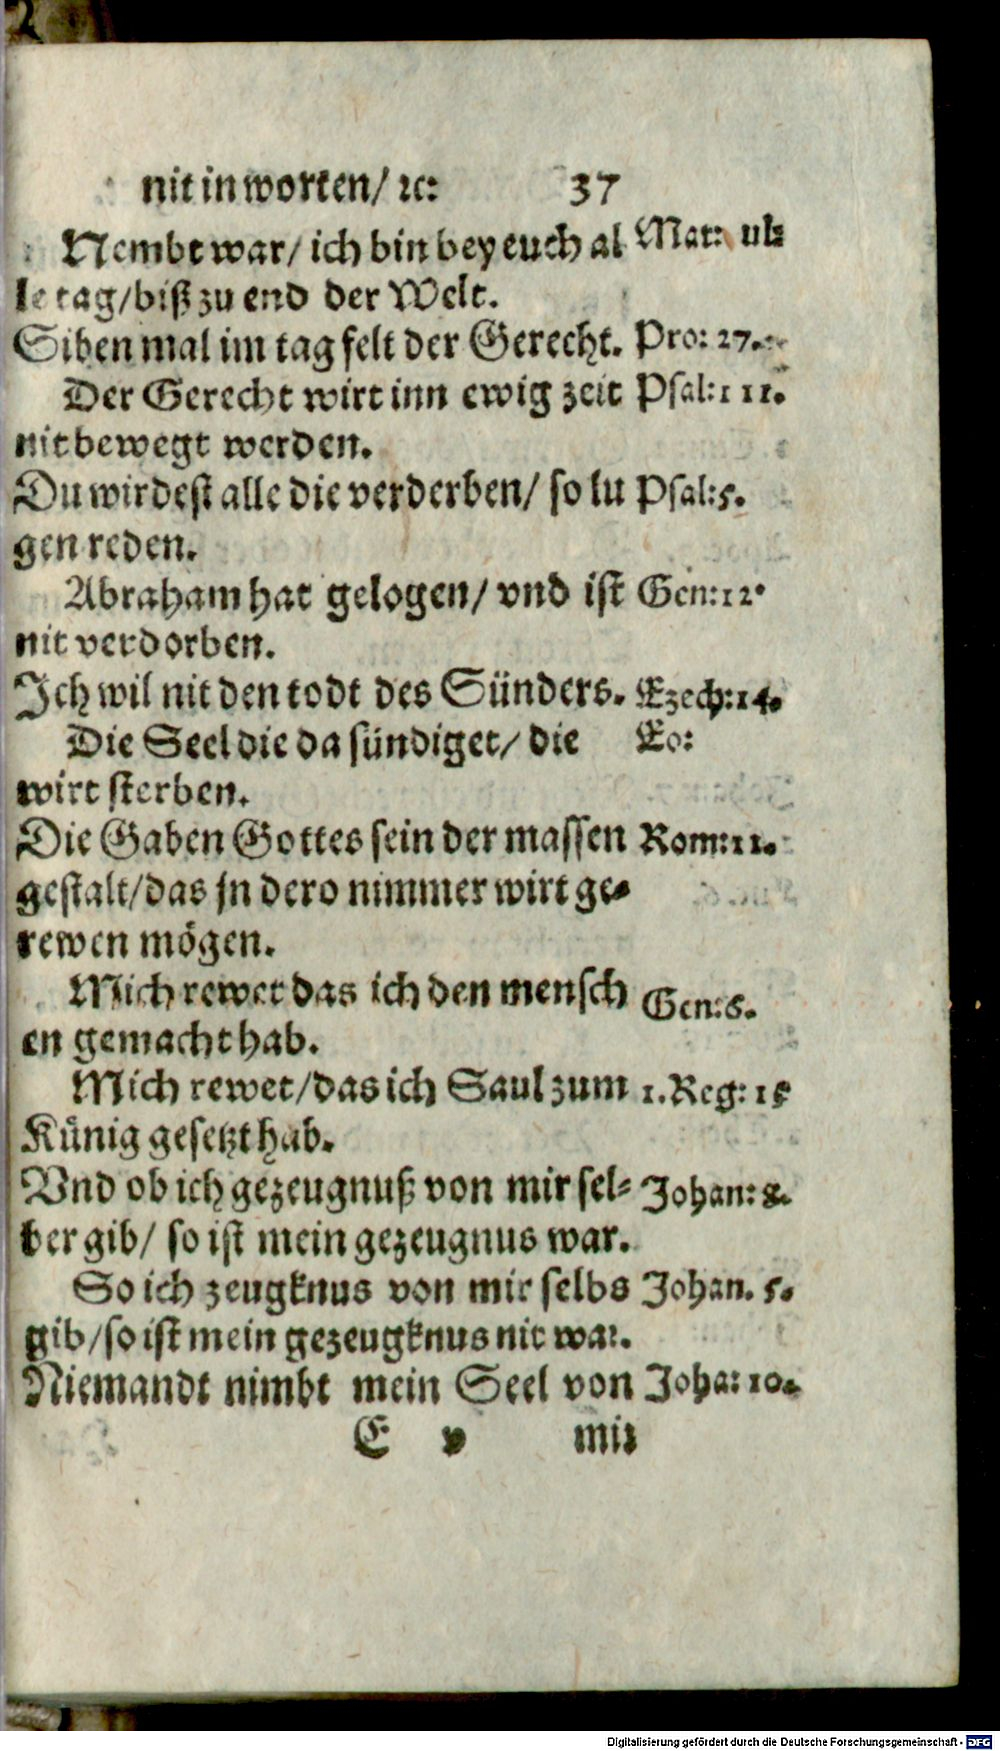 nit in worten/ ꝛc: 37
Nembt war/ ich bin bey euch al Mat: ult
le tag/biß zu end der Welt.
Siben mal im tag felt der Gerecht. Pro: 27.
Der Gerecht wirt inn ewig zeit Psal:111.
nit bewegt werden.
Du wirdest alle die verderben/ so lu Psal:5.
gen reden.
Abraham hat gelogen/ vnd ist Gen:12.
nit verdorben.
Ich wil nit den todt des Sünders. Ezech:14.
Die Seel die da sündiget/ die Eo:
wirt sterben.
Die Gaben Gottes sein der massen Rom:11.
gestalt/das jn dero nimmer wirt ge-
rewen mögen.
Mich rewet das ich den mensch Gen:6.
en gemacht hab.
Mich rewet/das ich Saul zum 1.Reg: 15
Künig gesetzt hab.
Vnd ob ich gezeugnuß von mir sel- Johan: 8.
ber gib/ so ist mein gezeugnus war.
So ich zeugknus von mir selbs Johan. 5.
gib/so ist mein gezeugknus nit war.
Niemandt nimbt mein Seel von Joha: 10.
E v mir
Digitalisierung gefördert durch die Deutsche Forschungsgemeinschaft - DFG